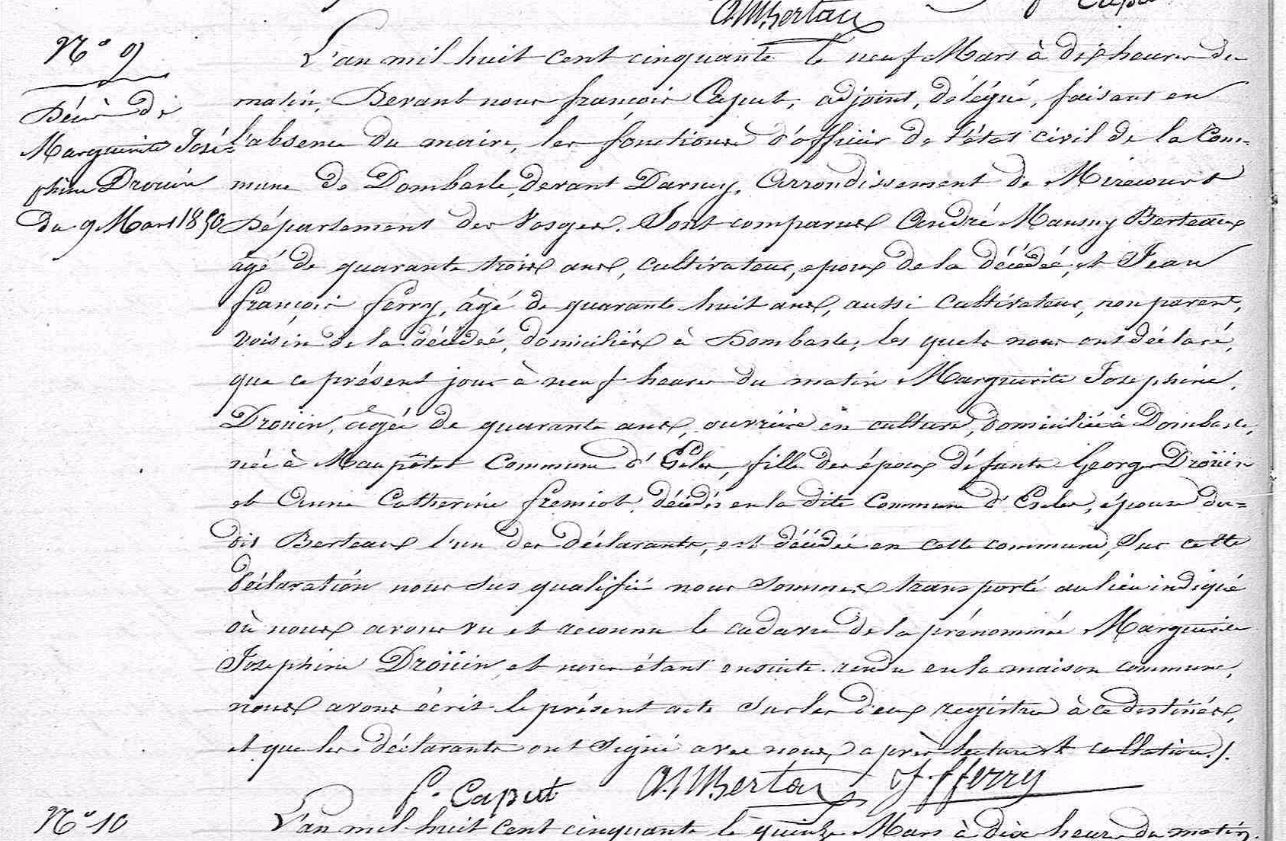 AMBertau
N° 9
Décès de
Marguerite José=
phine Drouin
du 9 Mars 1850
L'an mil huit cent cinquante le neuf Mars à dix heures du
matin, Devant nous françois Caput, adjoint, délégué, faisant en
l'absence du maire, les fonctions d'officier de l'état civil de la Com-
mune de Dombasle devant Darney, Arrondissement de Mirecourt
Département des Vosges. Sont comparus André Mausuy Berteaux
âgé de quarante trois ans, cultivateur, epoux de la décédée, et Jean
françois ferry, âgé de quarante huit ans, aussi cultivateur, non parent,
voisin de la décédée, domiciliés à Dombasle, les quels nous ont déclaré,
que ce présent jour à neuf heures du matin Marguerite Josephine
Droüin, âgée de quarante ans, ouvrière en culture, domiciliée à Dombasle,
née à Maupôtel Commune d'Esley, fille des époux défunts George Droüin
et Anne Catherine fremiot, décédés en la dite commune d'Esley, épouse du=
dit Berteaux l'un des déclarants, est décédée en cette commune, Sur cette
déclaration nous sus qualifié nous sommes transporté au lieu indiqué
où nous avons vu et reconnu le cadavre de la prénommée Marguerite
Josephine Droüin, et nous étant ensuite rendu en la maison commune,
nous avons écrit le présent acte sur les deux registres à ce destinés,
et que les déclarants ont signé avec nous, après lecture et collation ./.
f. Caput AMBertau J f ferry
N° 10
L'an mil huit cent cinquante le quinze Mars à dix heures du matin,